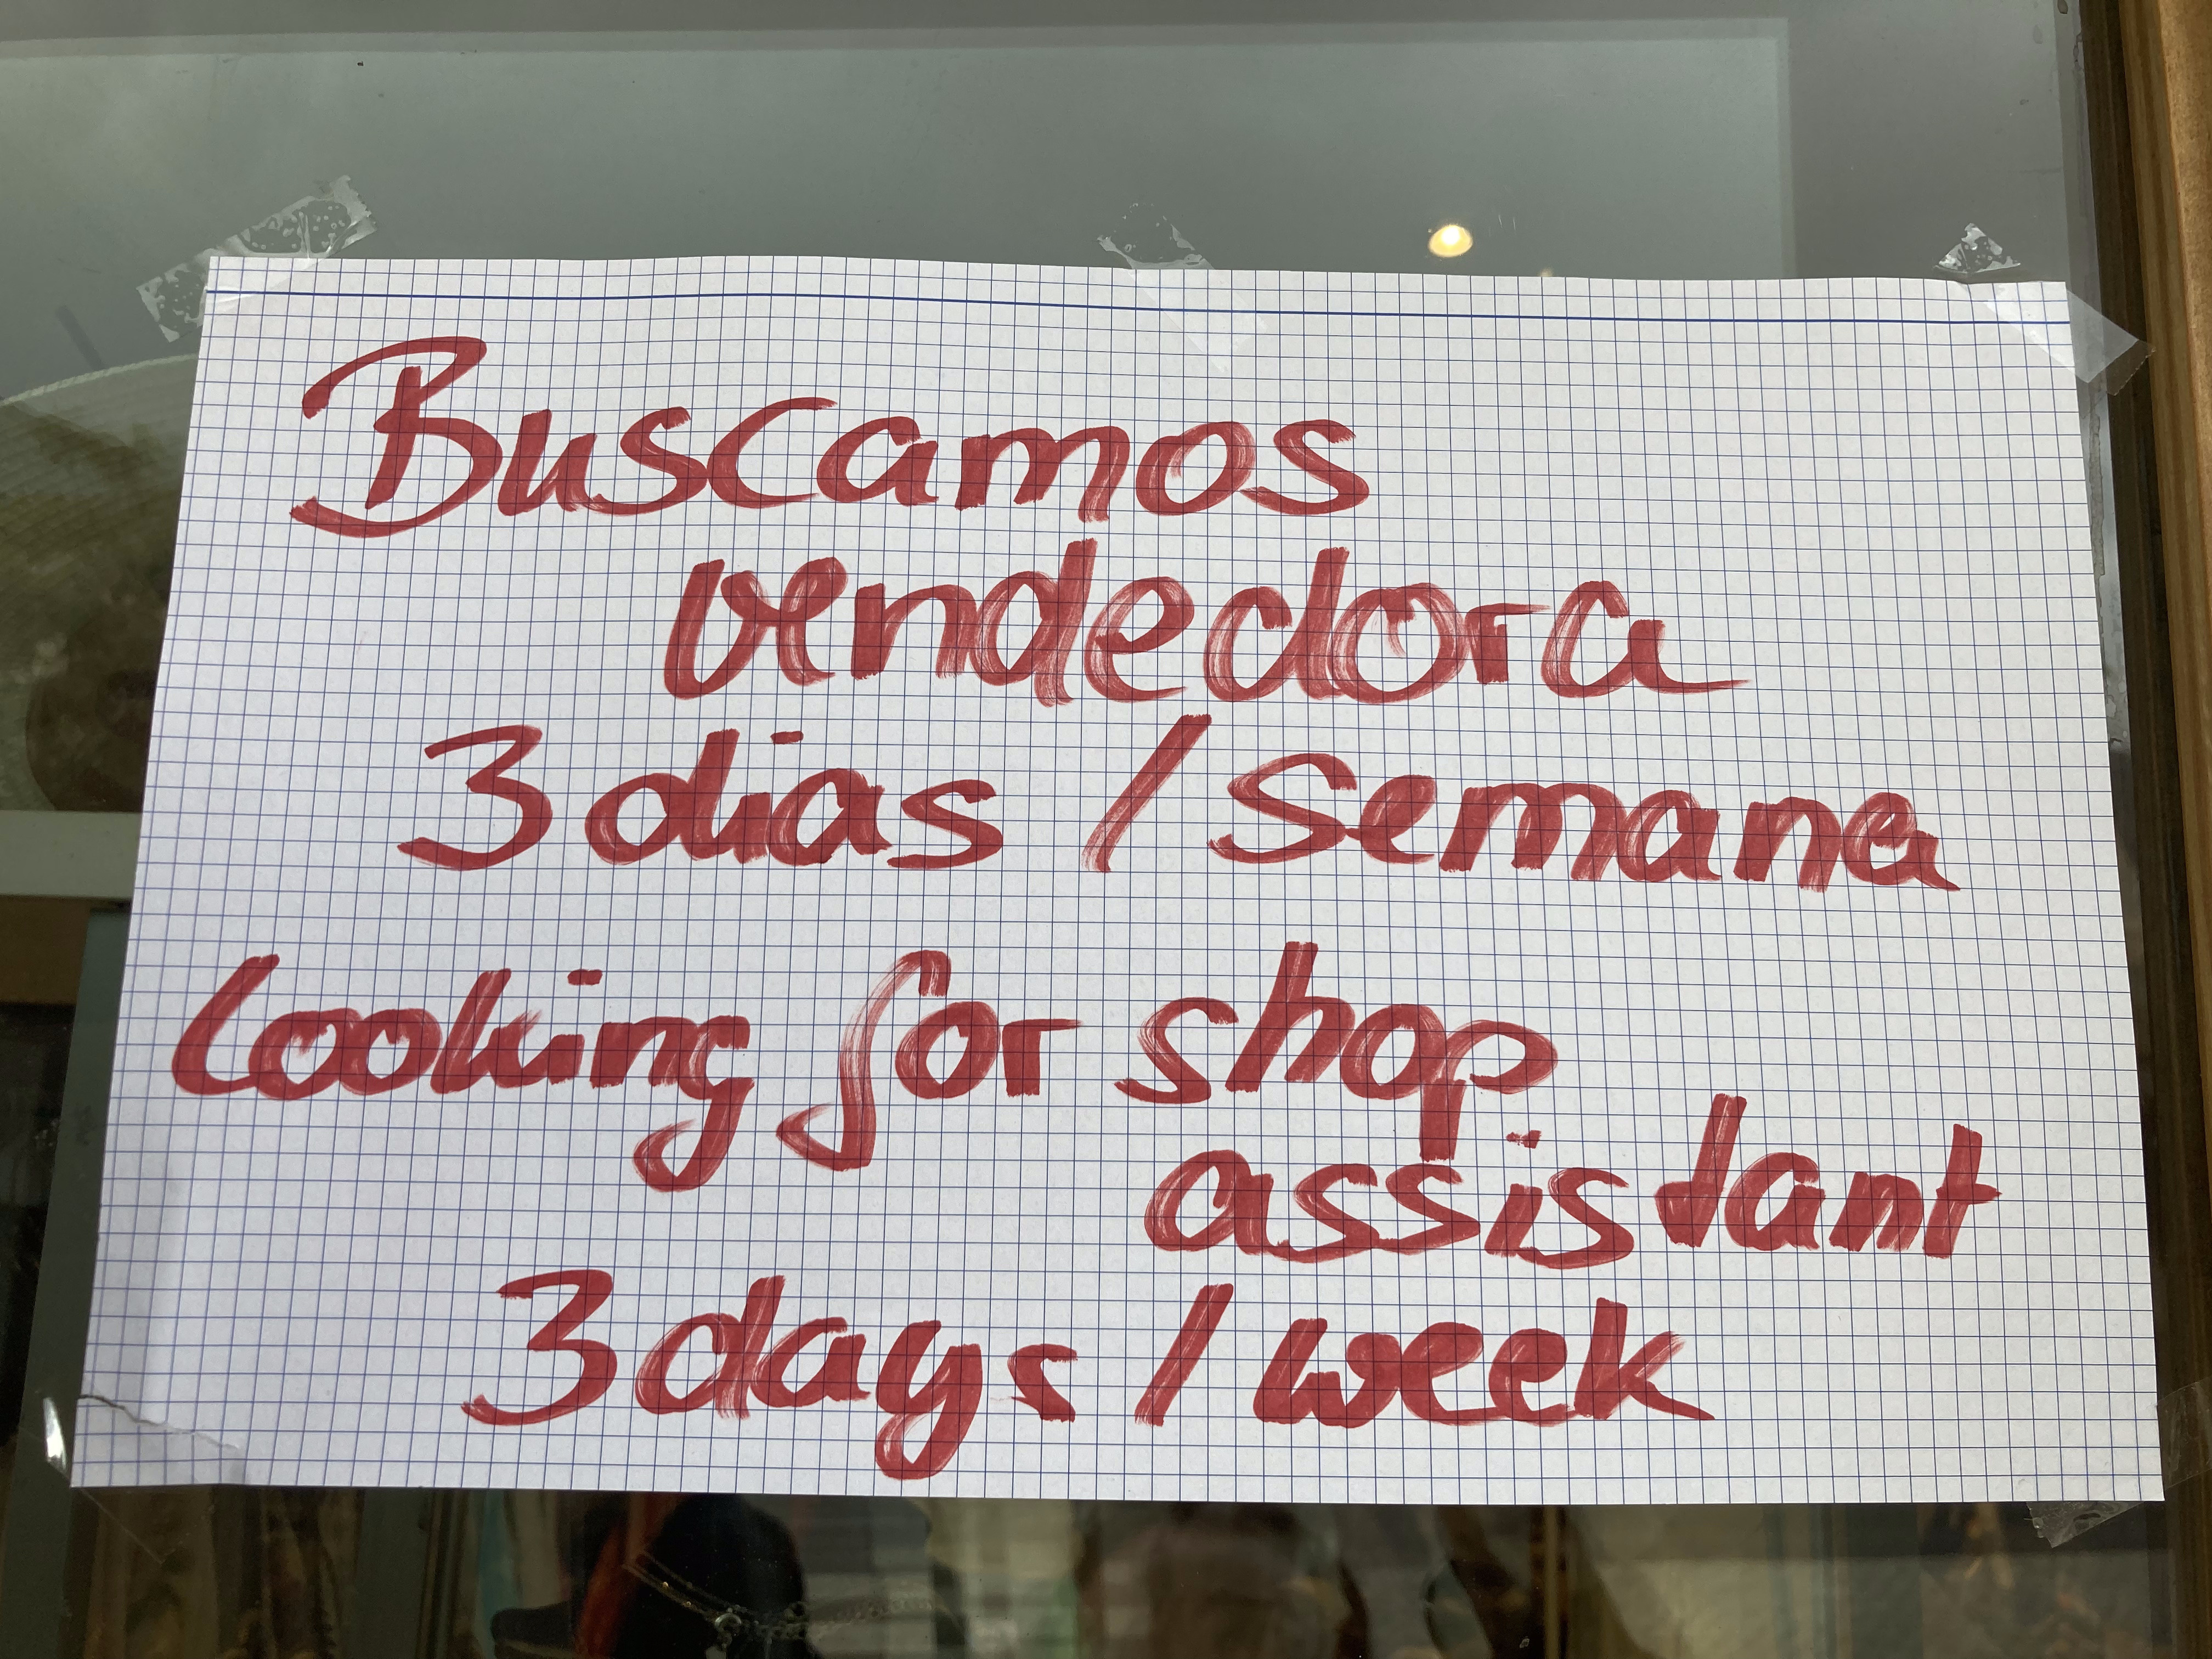 Buscamos
vendedora
3 días / Semana
looking for shop
assistant
3 days / week